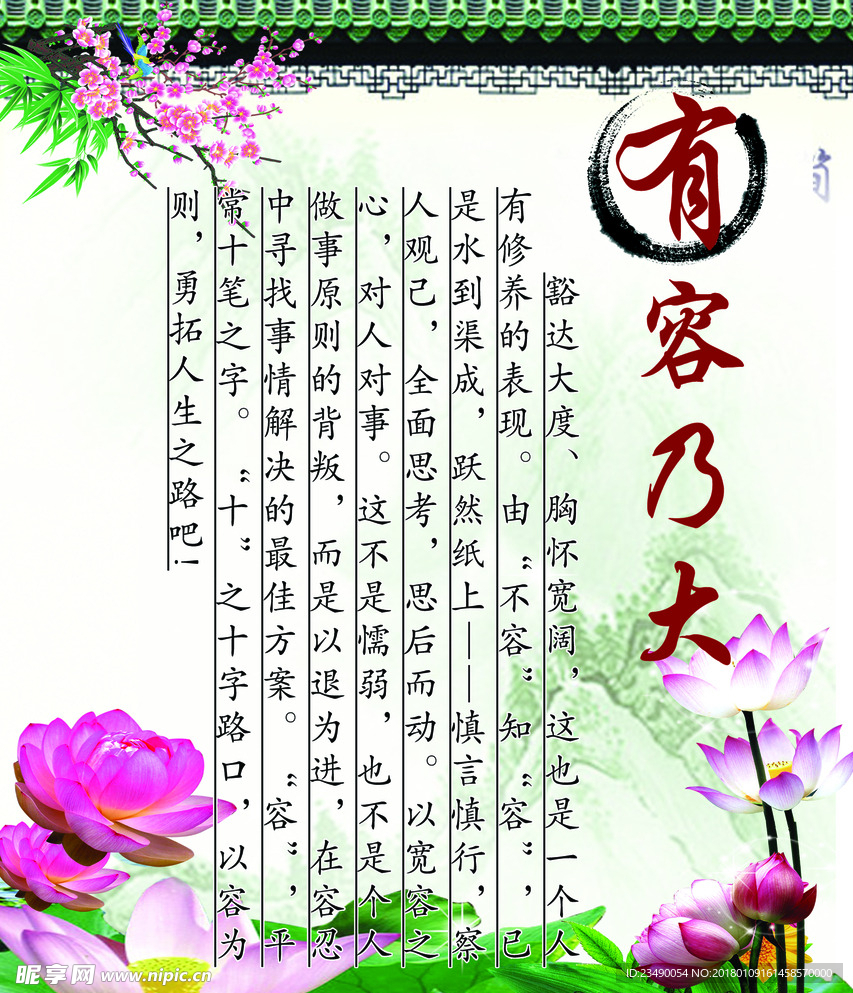 有容乃大
豁达大度、胸怀宽阔，这也是一个人
有修养的表现。由“不容”知“容”，已
是水到渠成，跃然纸上——慎言慎行，察
人观己，全面思考，思后而动。以宽容之
心，对人对事。这不是懦弱，也不是个人
做事原则的背叛，而是以退为进，在容忍
中寻找事情解决的最佳方案。“容”，平
常十笔之字。“十”之十字路口，以容为
则，勇拓人生之路吧！
昵享网 www.nipic.cn
ID:23490054 NO:20180109161458570000